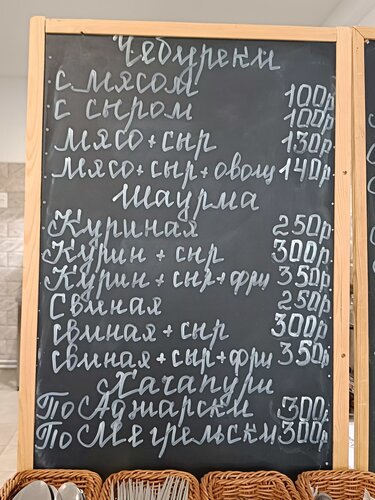 Чебуреки
с мясом 100р
с сыром 100р
мясо+сыр 130р
мясо+сыр+овощ 140р
Шаурма
Куриная 250р
Курин+сыр 300р
Курин+сыр+фри 350р
Свиная 250р
свиная+сыр 300р
свиная+сыр+фри 350р
Хачапури
По Аджарски 300р
По Мегрельски 300р